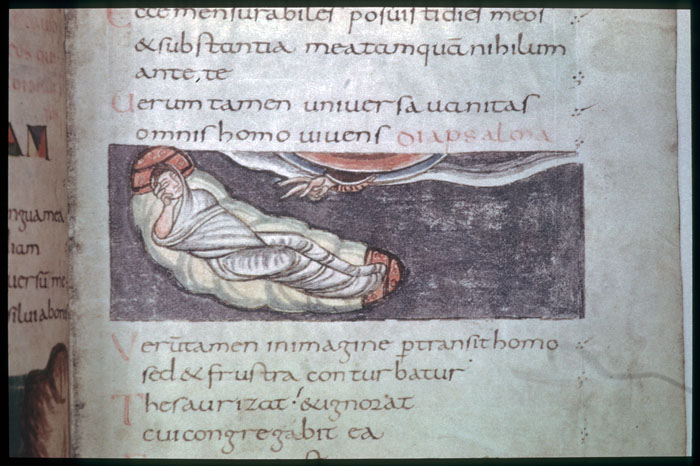 Ecce mensurabiles posuisti dies meos
& substantia mea tamquā nihilum
ante, te
Uerum tamen universa vanitas
omnis homo vivens DIAPSALMA
Verūtamen in imagine ptransit homo
sed & frustra conturbatur
Thesaurizat & ignorat
cui congregabit ea